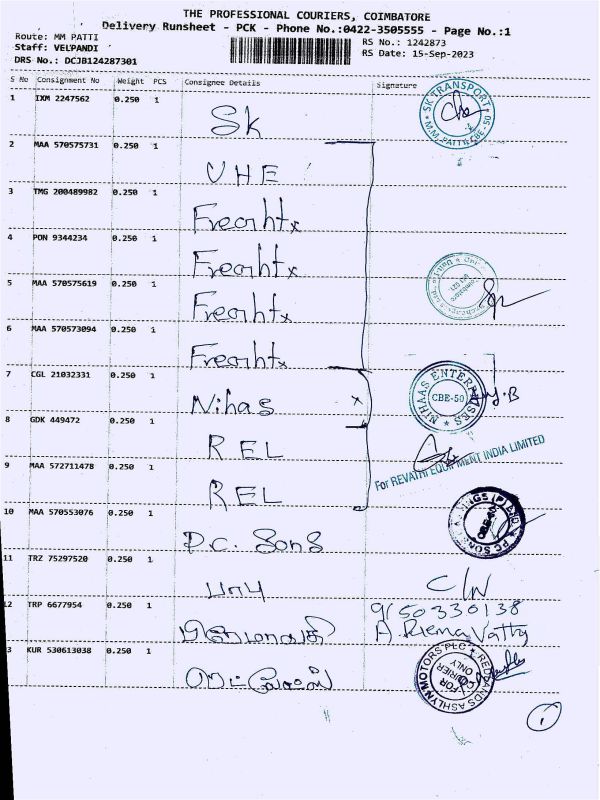 THE PROFESSIONAL COURIERS, COIMBATORE
Delivery Runsheet - PCK - Phone No.:0422-3505555 - Page No.:1
Route: MM PATTI
RS No.: 1242873
Staff: VELPANDI
RS Date: 15-Sep-2023
DRS No.: DCJB124287301
S No Consignment No Weight PCS Consignee Details Signature
1 IXM 2247562 0.250 1 SK
SK TRANSPORT ★ M.M. PATTI, CBE-50 ★
2 MAA 570575731 0.250 1 VHE
3 TMG 200489982 0.250 1
4 PON 9344234 0.250 1
5 MAA 570575619 0.250 1
6 MAA 570573094 0.250 1
7 CGL 21032331 0.250 1 Nihas x
NIHAAS ENTERPRISES ★ CBE-50
8 GDK 449472 0.250 1 REL
For REVATHI EQUIPMENT INDIA LIMITED
9 MAA 572711478 0.250 1 REL
10 MAA 570553076 0.250 1 P.C. Sons
11 TRZ 75297520 0.250 1 பாபு C/N
12 TRP 6677954 0.250 1 9150330138
3 KUR 530613038 0.250 1
REDDANDS ASHLYN MOTORS PLC ★ FOR COURIER ONLY
1